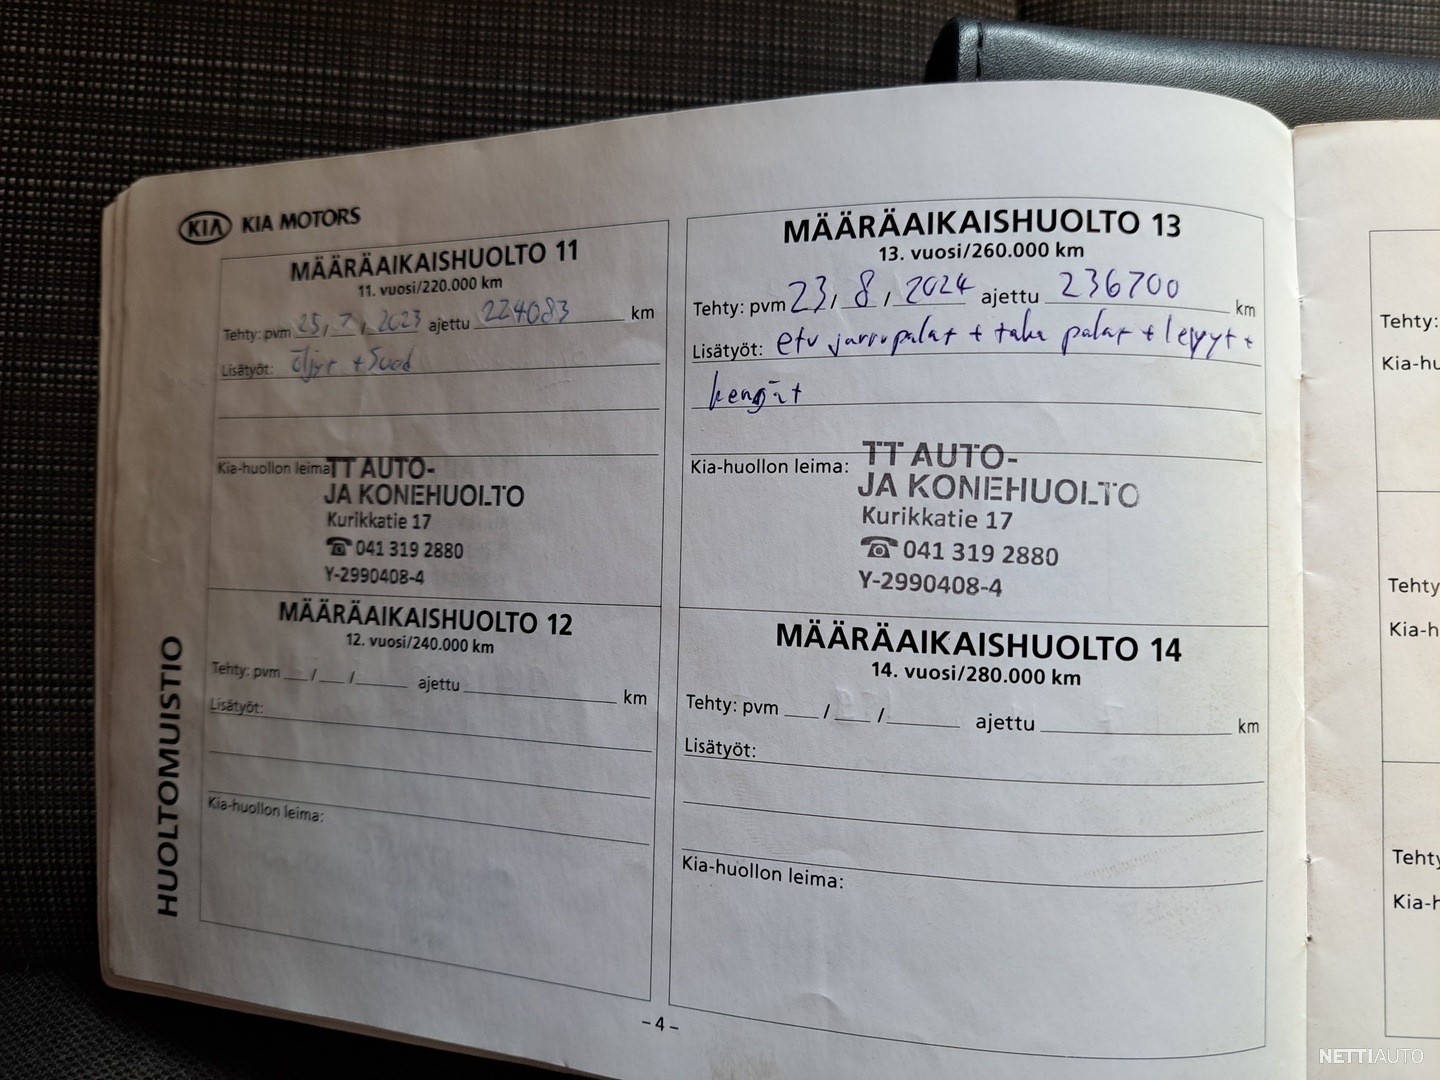 KIA KIA MOTORS
HUOLTOMUISTIO
MÄÄRÄAIKAISHUOLTO 11
11. vuosi/220.000 km
Tehty: pvm 25 / 7 / 2023 ajettu 224083 km
Lisätyöt: öljyt + Suod
Kia-huollon leima:
TT AUTO-
JA KONEHUOLTO
Kurikkatie 17
☎ 041 319 2880
Y-2990408-4
MÄÄRÄAIKAISHUOLTO 12
12. vuosi/240.000 km
Tehty: pvm __ / __ / ____ ajettu ____ km
Lisätyöt:
Kia-huollon leima:
MÄÄRÄAIKAISHUOLTO 13
13. vuosi/260.000 km
Tehty: pvm 23 / 8 / 2024 ajettu 236700 km
Lisätyöt: etu jarrupalat + taka palat + levyt +
kengät
Kia-huollon leima:
TT AUTO-
JA KONEHUOLTO
Kurikkatie 17
☎ 041 319 2880
Y-2990408-4
MÄÄRÄAIKAISHUOLTO 14
14. vuosi/280.000 km
Tehty: pvm __ / __ / ____ ajettu ____ km
Lisätyöt:
Kia-huollon leima:
– 4 –
Tehty:
Tehty
Tehty
NETTIAUTO